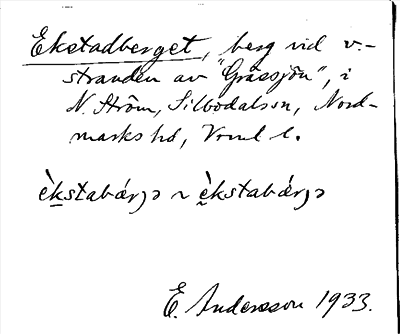 Ekstadberget, berg vid v.-
stranden av "Gräsjön", i
N. Ström, Silbodals sn, Nord-
marks hd, Vrml l.
è̀kstabǽrjə ~ è̀kstabǽrjə
E. Andersson 1933.